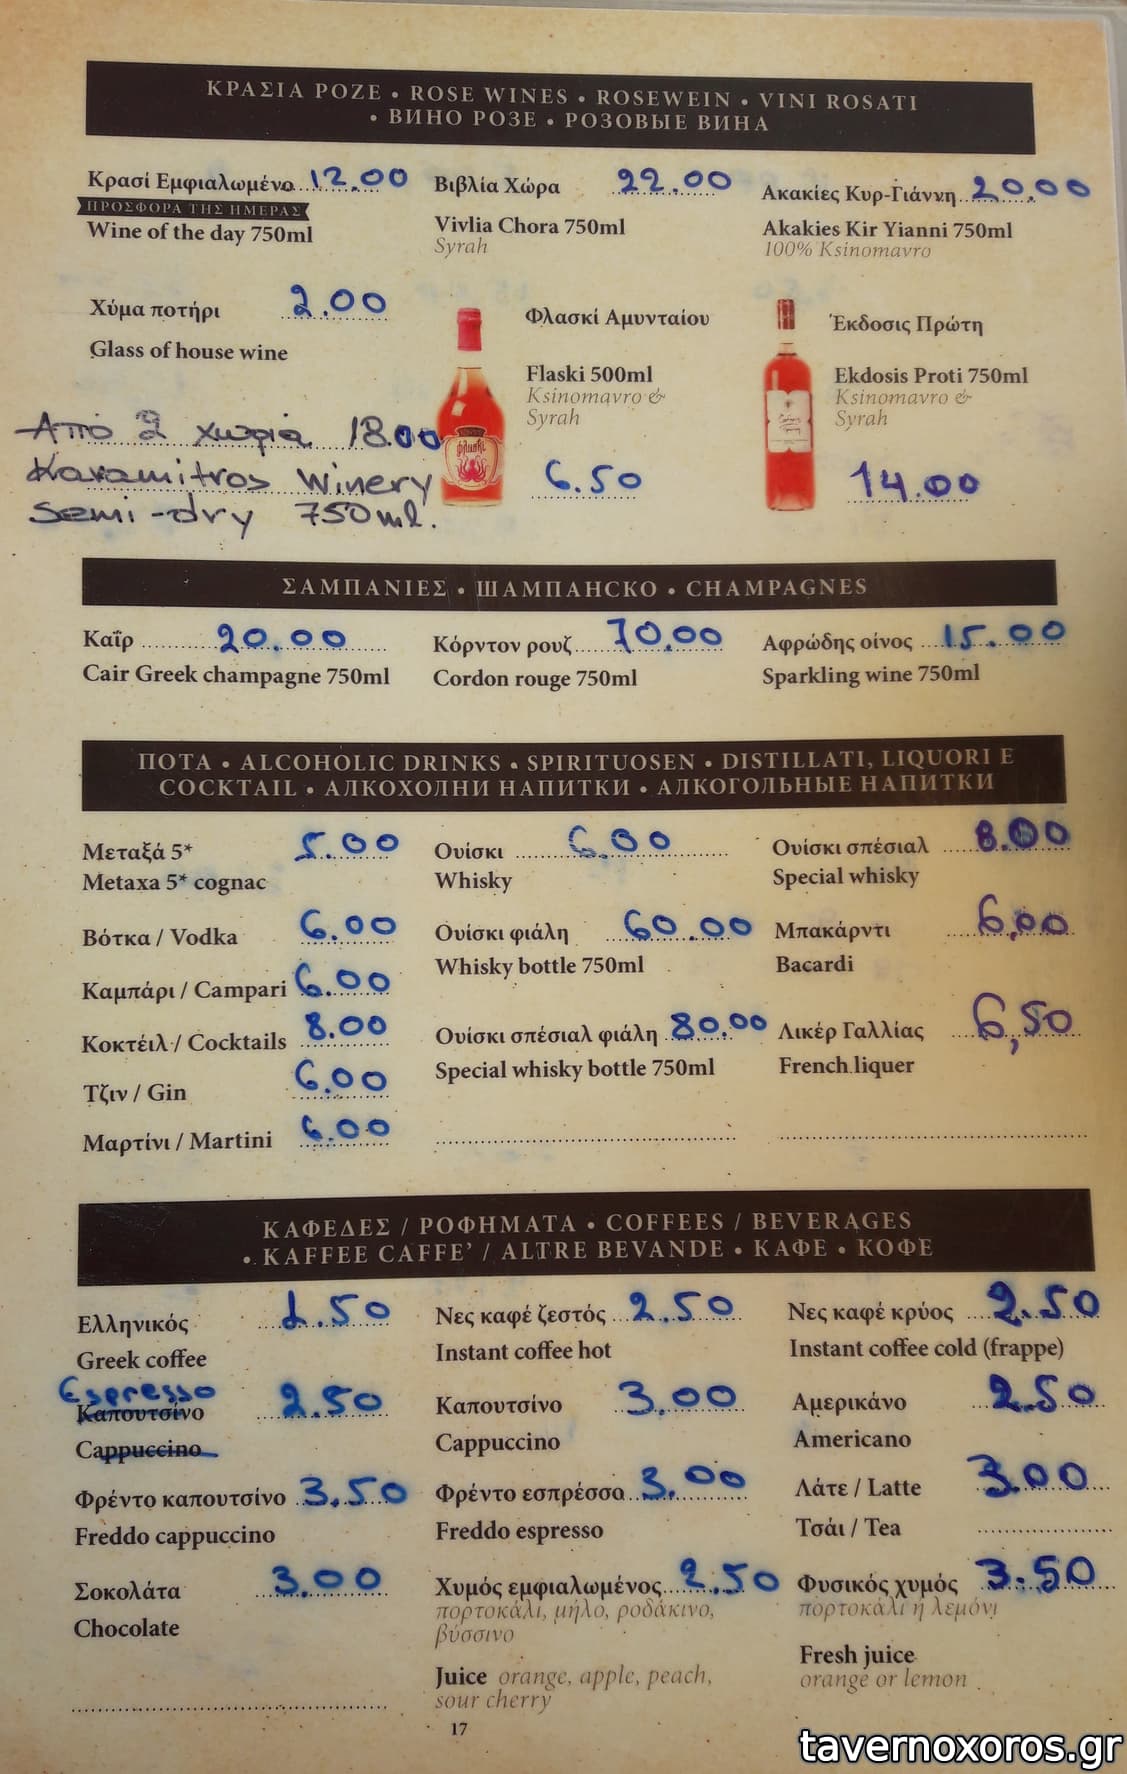 ΚΡΑΣΙΑ ΡΟΖΕ • ROSE WINES • ROSEWEIN • VINI ROSATI
• ВИНО РОЗЕ • РОЗОВЫЕ ВИНА
Κρασί Εμφιαλωμένο 12.00
ΠΡΟΣΦΟΡΑ ΤΗΣ ΗΜΕΡΑΣ
Wine of the day 750ml
Βιβλία Χώρα 22.00
Vivlia Chora 750ml
Syrah
Ακακίες Κυρ-Γιάννη 20.00
Akakies Kir Yianni 750ml
100% Ksinomavro
Χύμα ποτήρι 2.00
Glass of house wine
Φλασκί Αμυνταίου
Flaski 500ml
Ksinomavro &
Syrah
6.50
Έκδοσις Πρώτη
Ekdosis Proti 750ml
Ksinomavro &
Syrah
14.00
Από 2 χωριά 18.00
Karamitros Winery
Semi-dry 750ml.
φλασκί
ΣΑΜΠΑΝΙΕΣ • ШАМПАНСКО • CHAMPAGNES
Καΐρ 20.00
Cair Greek champagne 750ml
Κόρντον ρουζ 70.00
Cordon rouge 750ml
Αφρώδης οίνος 15.00
Sparkling wine 750ml
ΠΟΤΑ • ALCOHOLIC DRINKS • SPIRITUOSEN • DISTILLATI, LIQUORI E
COCKTAIL • АЛКОХОЛНИ НАПИТКИ • АЛКОГОЛЬНЫЕ НАПИТКИ
Μεταξά 5* 5.00
Metaxa 5* cognac
Βότκα / Vodka 6.00
Καμπάρι / Campari 6.00
Κοκτέιλ / Cocktails 8.00
Τζιν / Gin 6.00
Μαρτίνι / Martini 6.00
Ουίσκι 6.00
Whisky
Ουίσκι φιάλη 60.00
Whisky bottle 750ml
Ουίσκι σπέσιαλ φιάλη 80.00
Special whisky bottle 750ml
Ουίσκι σπέσιαλ 8.00
Special whisky
Μπακάρντι 6,00
Bacardi
Λικέρ Γαλλίας 6,50
French liquer
ΚΑΦΕΔΕΣ / ΡΟΦΗΜΑΤΑ • COFFEES / BEVERAGES
• KAFFEE CAFFE' / ALTRE BEVANDE • КАФЕ • КОФЕ
Ελληνικός 1.50
Greek coffee
Espresso
Καπουτσίνο 2.50
Cappuccino
Φρέντο καπουτσίνο 3.50
Freddo cappuccino
Σοκολάτα 3.00
Chocolate
Νες καφέ ζεστός 2.50
Instant coffee hot
Καπουτσίνο 3.00
Cappuccino
Φρέντο εσπρέσσο 3.00
Freddo espresso
Χυμός εμφιαλωμένος 2.50
πορτοκάλι, μήλο, ροδάκινο,
βύσσινο
Juice orange, apple, peach,
sour cherry
Νες καφέ κρύος 2.50
Instant coffee cold (frappe)
Αμερικάνο 2.50
Americano
Λάτε / Latte 3.00
Τσάι / Tea
Φυσικός χυμός 3.50
πορτοκάλι ή λεμόνι
Fresh juice
orange or lemon
17
tavernoxoros.gr